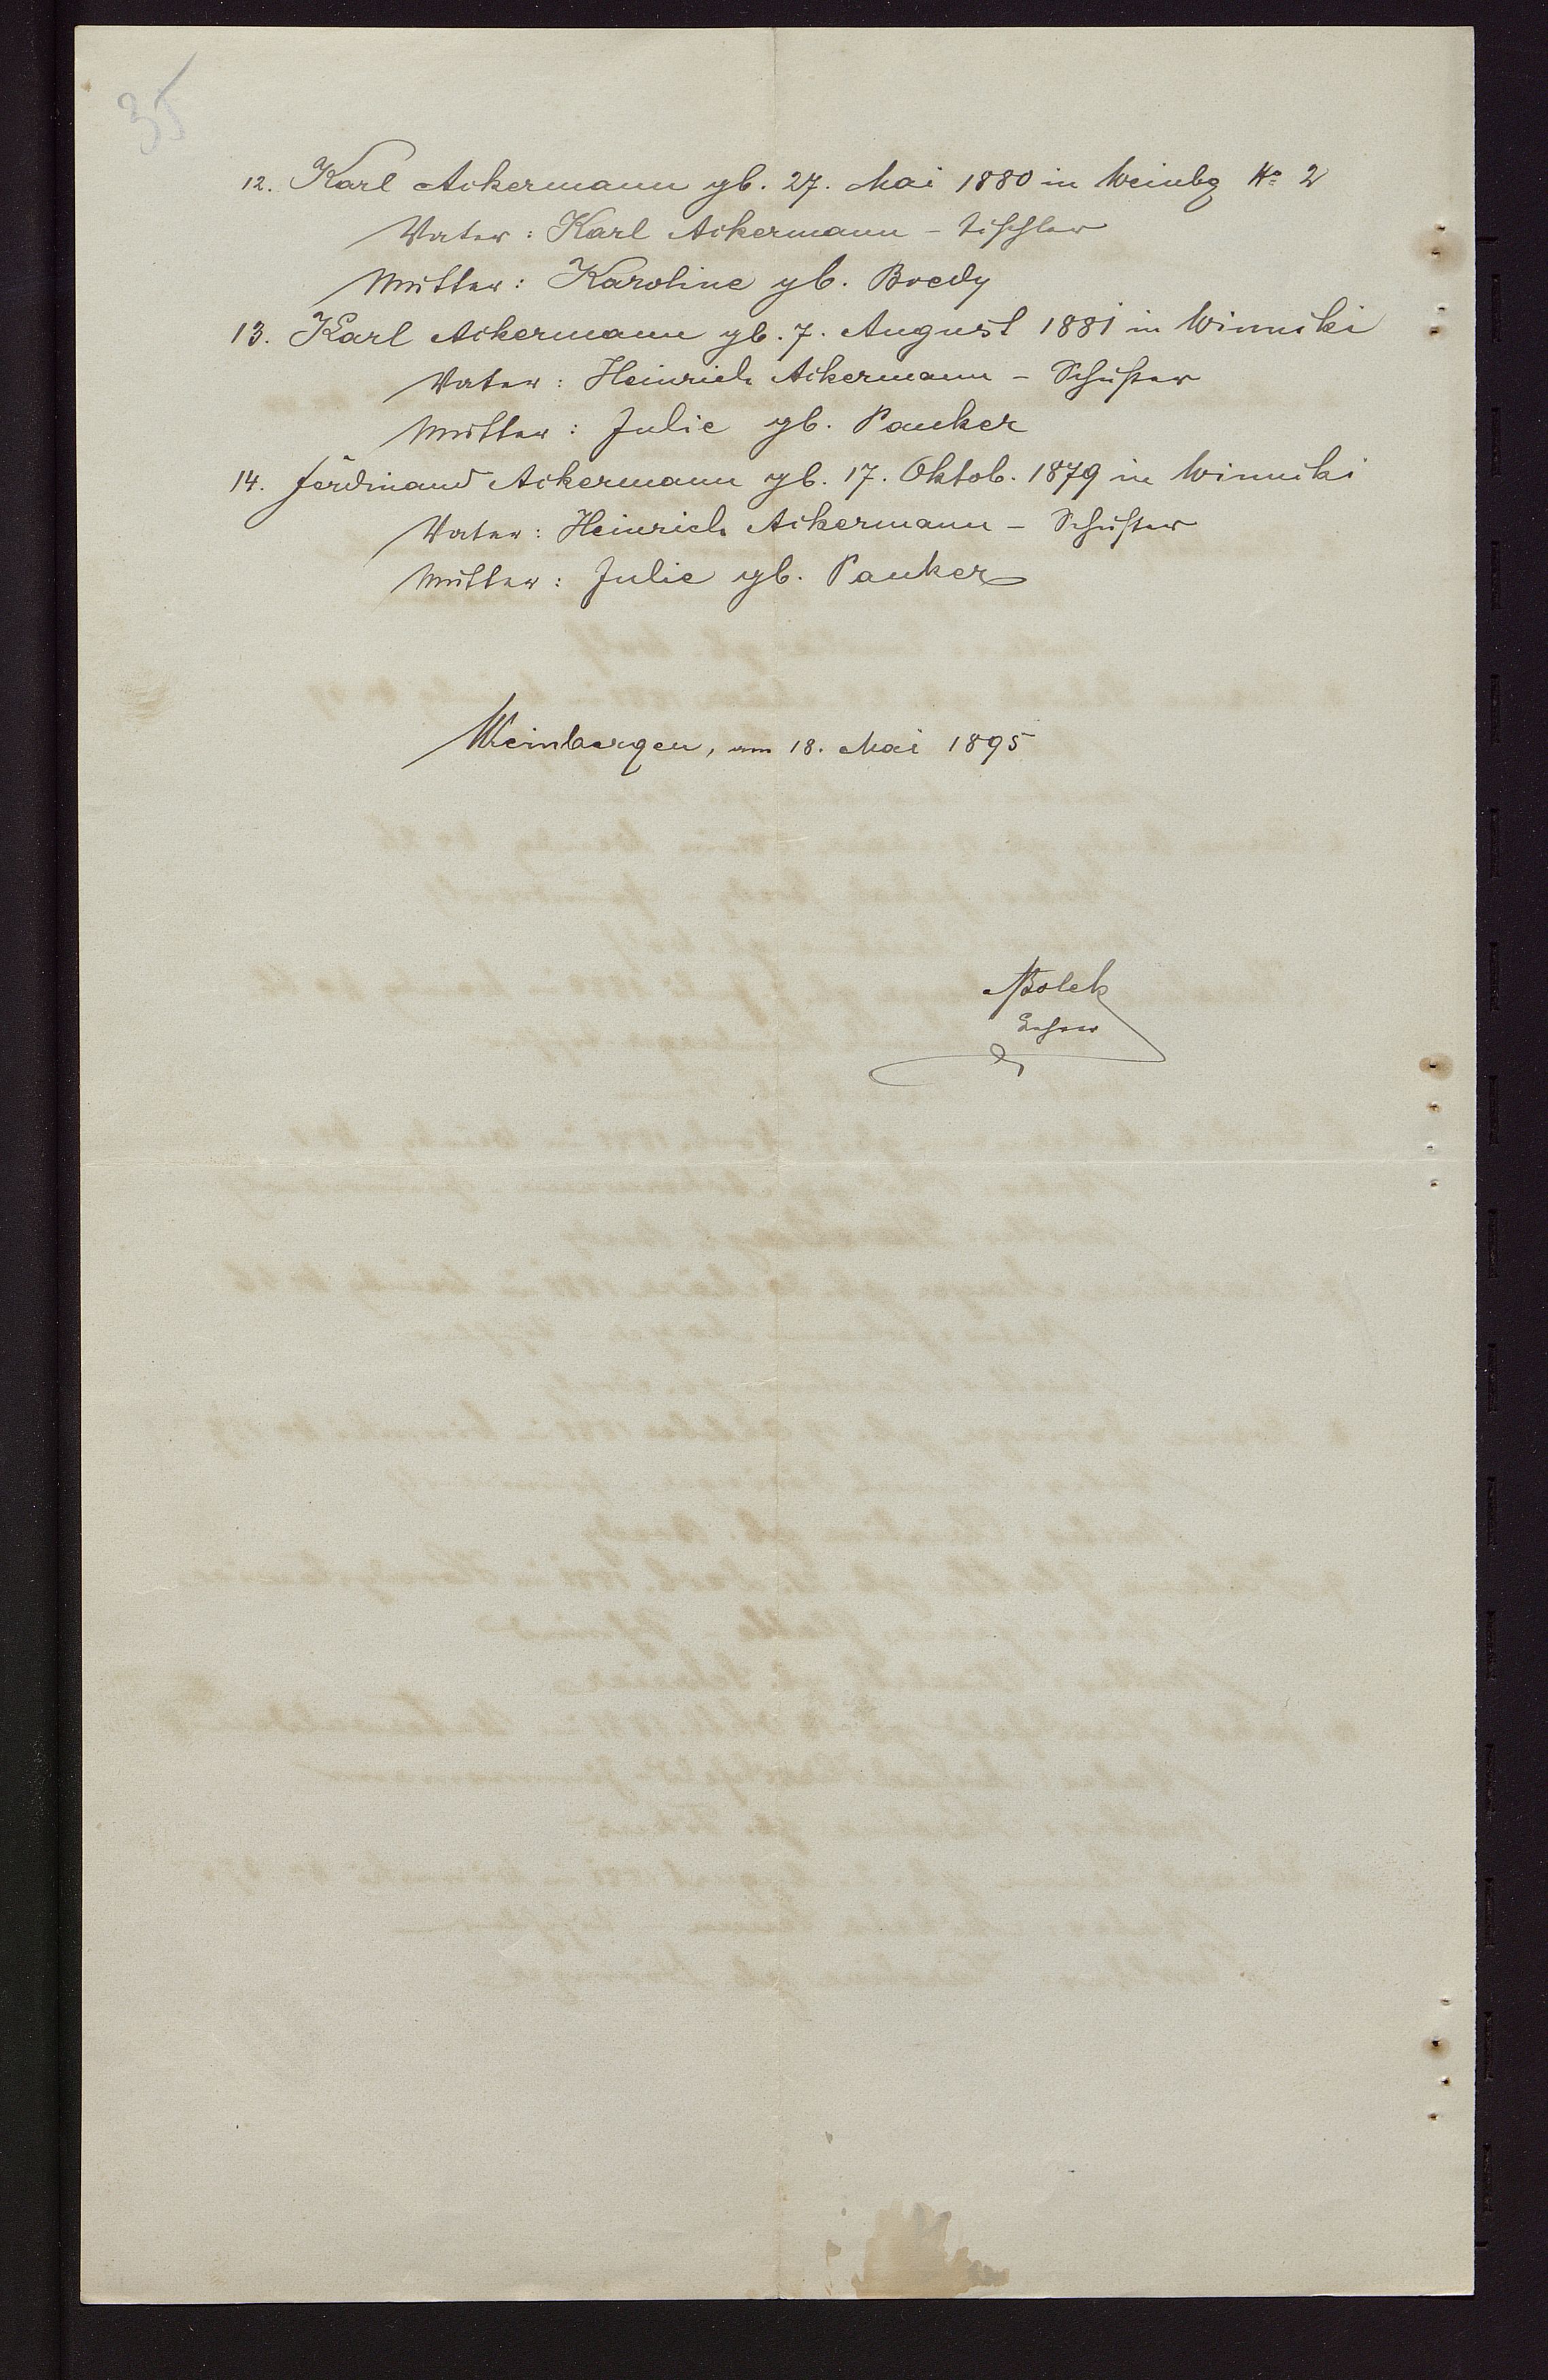 35
12. Karl Ackermann gb. 27. Mai 1880 in Weinbg No 2
Vater: Karl Ackermann - Tischler
Mutter: Karoline gb. Bredy
13. Karl Ackermann gb. 7. August 1881 in Winniki
Vater: Heinrich Ackermann - Schuster
Mutter: Julie gb. Pauker
14. Ferdinand Ackermann gb. 17. Oktob. 1879 in Winniki
Vater: Heinrich Ackermann - Schuster
Mutter: Julie gb. Pauker
Weinbergen, am 18. Mai 1895
Bolek
Lehrer